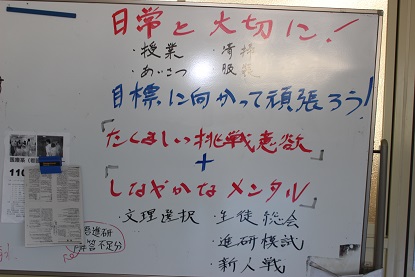 日常を大切に!
・授業 ・清掃
・あいさつ ・服装
目標に向かって頑張ろう!
「たくましい挑戦意欲」
+
「しなやかなメンタル」
・文理選択 ・生徒総会
・進研模試
・新人戦
110
進研
解答不足分